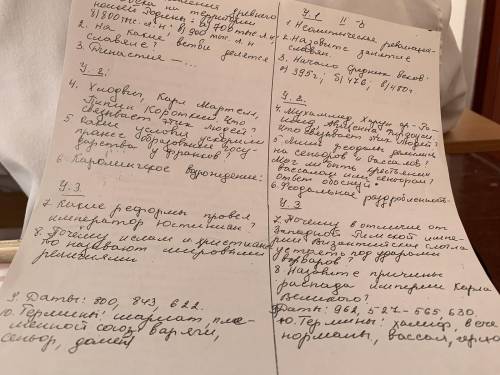 нашей Родины: а) 700 тыс. л.н
б) 800 тыс. л.н; в) 900 тыс. л.н
2. На какие ветви делятся
славяне?
3. Династия — ...
У. 2:
4. Хлодвиг, Карл Мартелл,
Пипин Короткий. Что
связывает этих людей?
5. Какие условия ускорили
образование госу-
дарства у франков?
6. Каролингское возрождение:
У. 3
7. Какие реформы провел
император Юстиниан?
8. Почему ислам и христианс
во называют мировыми
религиями
9. Даты: 800, 843, 622.
10. Термины: шариат, пле-
менной союз, варяги,
сеньор, домен
У. 1 II - В
1. Неолитическая революция-
2. Назовите занятие
славян.
3. Начало Средних веков:
а) 395г; б) 476; в) 480г
У. 2.
4. Мухаммед, Харун ар-Ра-
шид, Авиценна, Фирдоуси
Что связывает этих людей?
5. феодалы делились
на сеньоров и вассалов?
Мог ли быть крестьянин
вассалом или сеньором?
ответ обоснуй.
6. Феодальная раздробленность
У. 3
7. Почему в отличие от
Западной Римской импе-
рии Византийская смогла
устоять под ударами
варваров
8. Назовите причины
распада империи Карла
Великого?
Даты: 962, 527-565, 630.
10. Термины: халиф, вече
норманы, вассал,